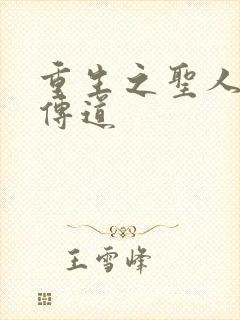 重生之聖人
傳道
王雪峰